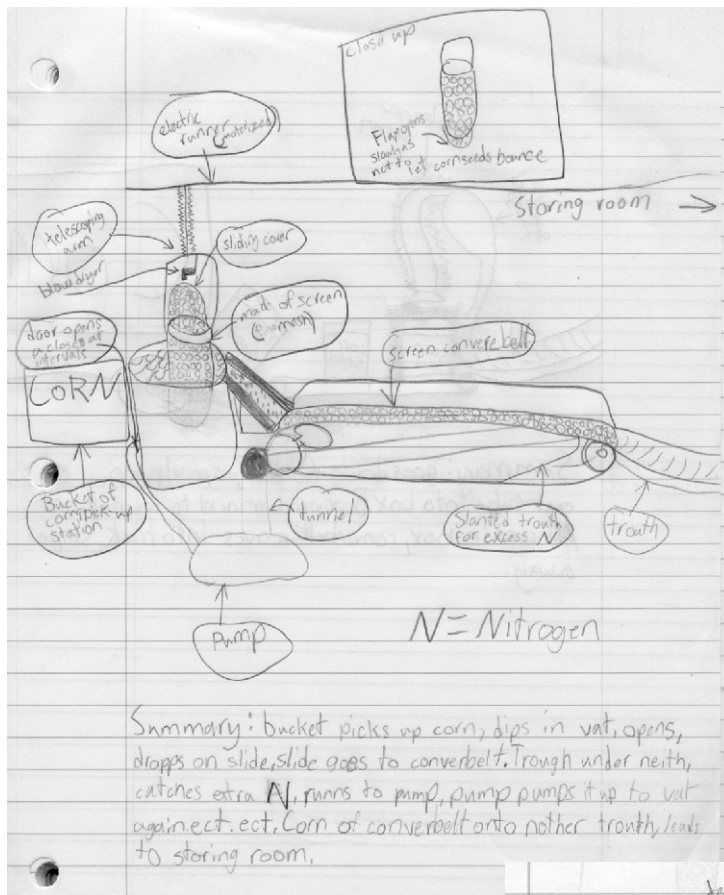 close up
Flap opens
slowly as
not to let corn seeds bounce
electric
runner (moterized)
Storing room
telescoping
arm
sliding cover
blow dryer
made of screen
(fine mesh)
door opens
& closes at
intervals
screen convere belt
CORN
Bucket of
corn/pick up
station
tunnel
Slanted trouth
for excess N
trouth
Pump
N = Nitrogen
Summary: bucket picks up corn, dips in vat, opens,
dropps on slide, slide goes to converbelt. Trough under neith,
catches extra N, runns to pump, pump pumps it up to vat
again ect. ect. Corn of converbelt onto nother trouth, leads
to storing room.